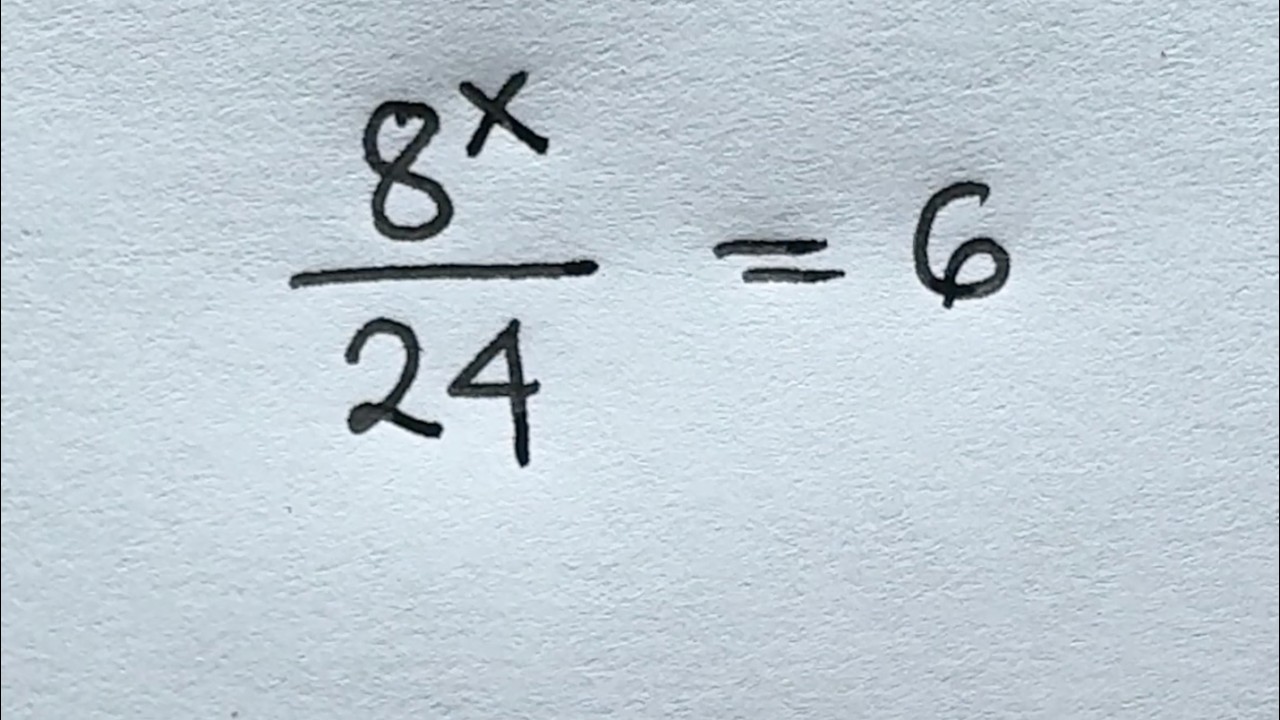 8^x
24
= 6